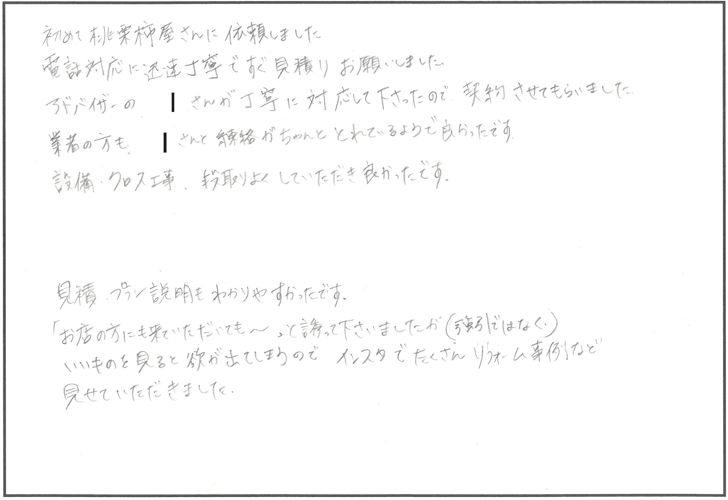 初めて桃栗柿屋さんに依頼しました
電話対応に迅速丁寧ですぐ見積りお願いしました。
アドバイザーの さんが丁寧に対応して下さったので、契約させてもらいました。
業者の方も、 さんと連絡がちゃんととれているようで良かったです。
設備・クロス工事、段取りよくしていただき良かったです。
見積、プラン説明もわかりやすかったです。
「お店の方にも来ていただいても〜」と誘って下さいましたが(強引ではなく。)
いいものを見ると欲が出てしまうので インスタでたくさんリフォーム事例など
見せていただきました。